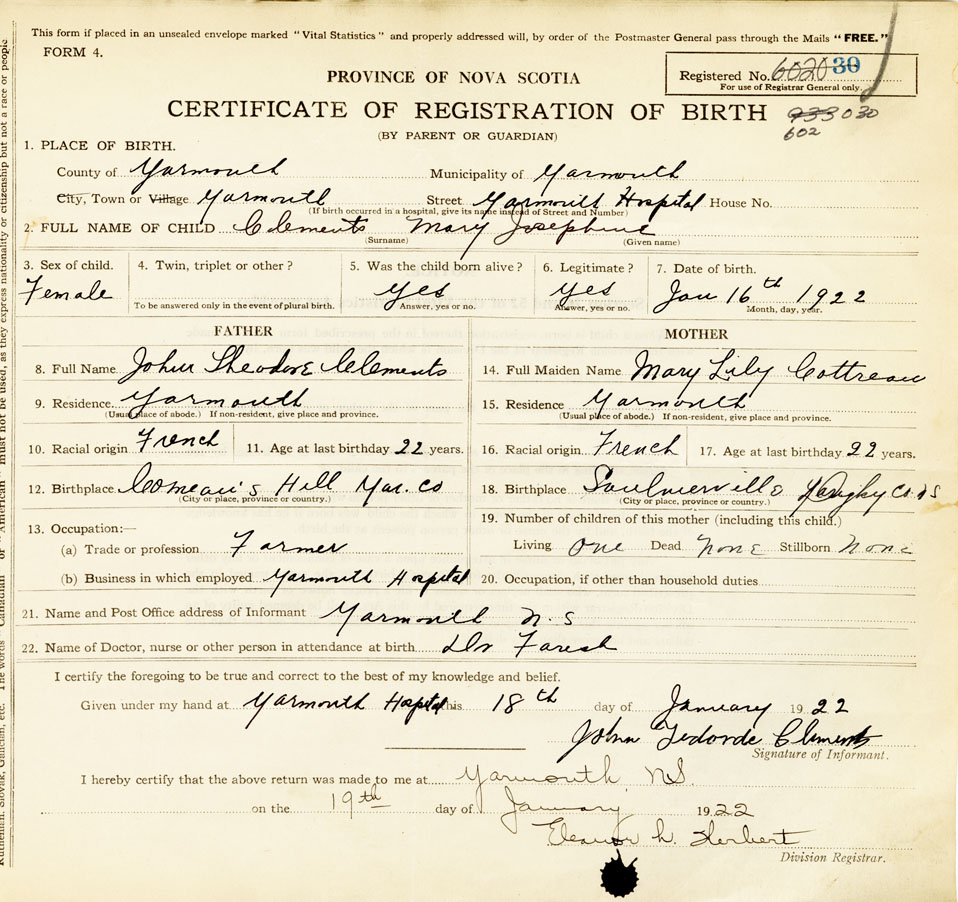 This form if placed in an unsealed envelope marked "Vital Statistics" and properly addressed will, by order of the Postmaster General pass through the Mails "FREE."
FORM 4.
Registered No. 6020 30
For use of Registrar General only.
PROVINCE OF NOVA SCOTIA
CERTIFICATE OF REGISTRATION OF BIRTH 933 030
602
(BY PARENT OR GUARDIAN)
1. PLACE OF BIRTH.
County of Yarmouth Municipality of Yarmouth
City, Town or Village Yarmouth Street Yarmouth Hospital House No.
(If birth occurred in a hospital, give its name instead of Street and Number)
2. FULL NAME OF CHILD Clements Mary Josephine
(Surname) (Given name)
3. Sex of child. 4. Twin, triplet or other? 5. Was the child born alive? 6. Legitimate? 7. Date of birth.
Female Yes Yes Jan 16th 1922
To be answered only in the event of plural birth. Answer, yes or no. Answer, yes or no. Month, day, year.
FATHER MOTHER
8. Full Name John Theodore Clements 14. Full Maiden Name Mary Lily Cottreau
9. Residence. Yarmouth 15. Residence Yarmouth
(Usual place of abode.) If non-resident, give place and province. (Usual place of abode.) If non-resident, give place and province.
10. Racial origin French 11. Age at last birthday 22 years. 16. Racial origin French 17. Age at last birthday 22 years.
12. Birthplace Comeau's Hill Yar. Co 18. Birthplace Saulnierville Digby Co. N S
(City or place, province or country.) (City or place, province or country.)
13. Occupation:— 19. Number of children of this mother (including this child.)
(a) Trade or profession Farmer Living One Dead None Stillborn None
(b) Business in which employed Yarmouth Hospital 20. Occupation, if other than household duties
21. Name and Post Office address of Informant Yarmouth N. S
22. Name of Doctor, nurse or other person in attendance at birth Dr Farish
I certify the foregoing to be true and correct to the best of my knowledge and belief.
Given under my hand at Yarmouth Hospital this 18th day of January 1922
John Tedorde Clements
Signature of Informant.
I hereby certify that the above return was made to me at Yarmouth N.S.
on the 19th day of January 1922
Eleanor L. Herbert
Division Registrar.
Ruthenian, Slovak, Galician, etc. The words "Canadian" or "American" must not be used, as they express nationality or citizenship but not a race or people